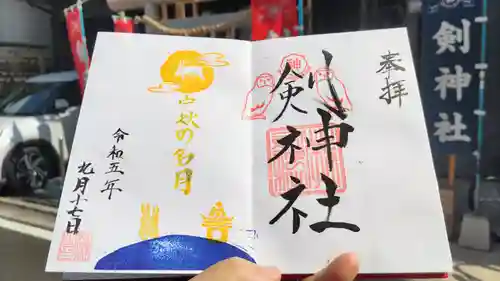 剣神社
奉拝
剣神社
中秋の名月
令和五年
九月十七日